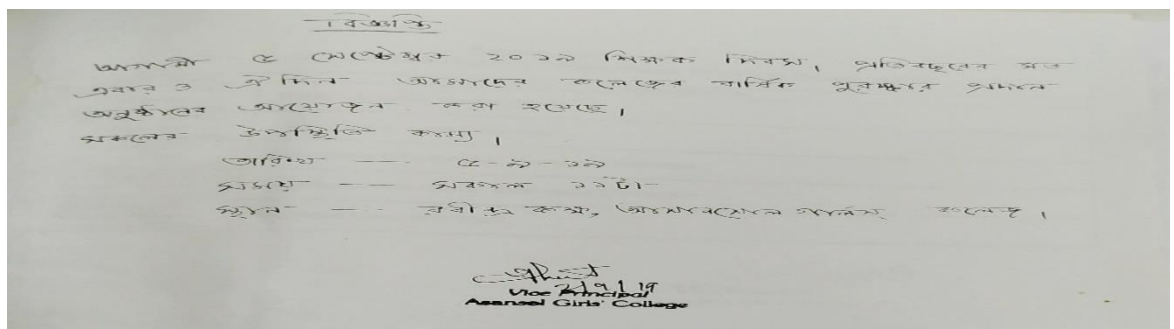 বিজ্ঞপ্তি
আগামী ৫ সেপ্টেম্বর ২০১৯ শিক্ষক দিবস। প্রতিবছরের মত
এবার ও ঐ দিন আমাদের কলেজের বার্ষিক পুরস্কার প্রদান
অনুষ্ঠানের আয়োজন করা হয়েছে।
সকলের উপস্থিতি কাম্য।
তারিখ --- ৫-৯-১৯
সময় --- সকাল ১১টা
স্থান --- রবীন্দ্র কক্ষ, আসানসোল গার্লস্ কলেজ।
2/9/19
Vice Principal
Asansol Girls' College